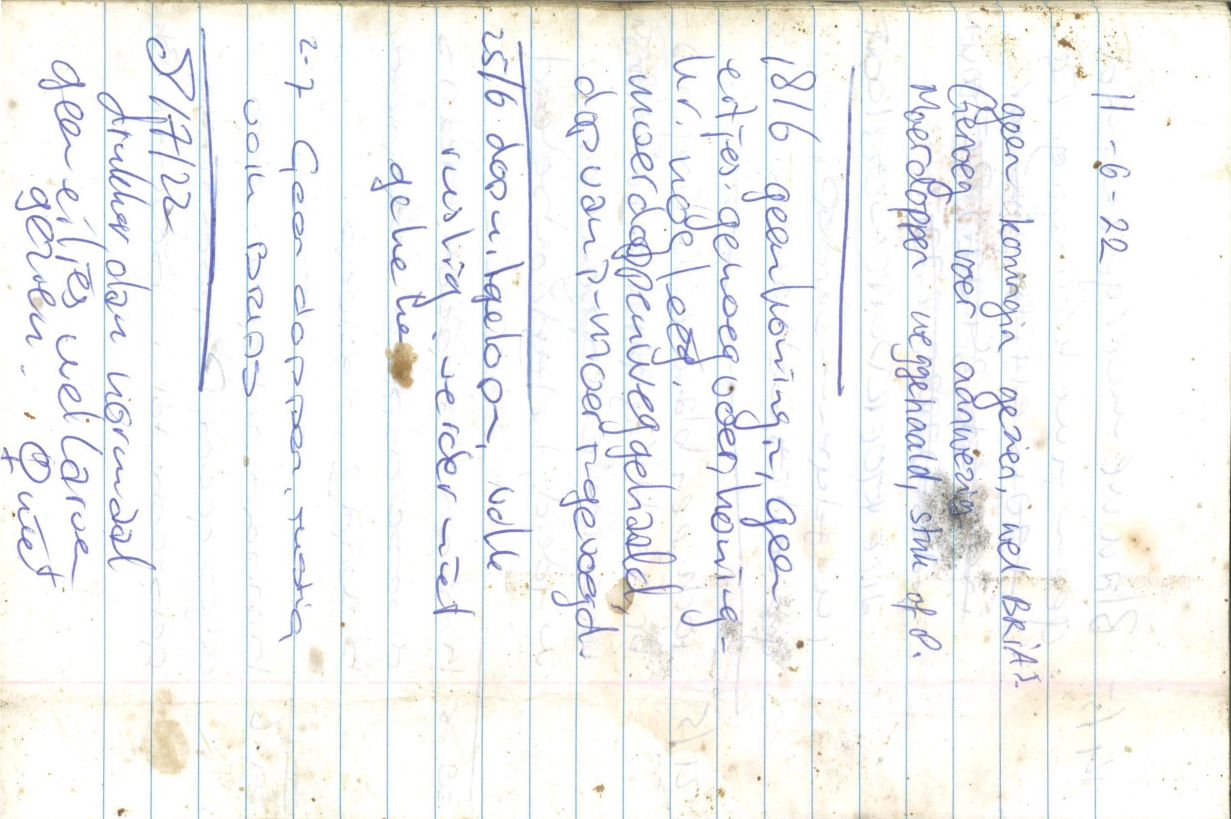 11-6-22
geen koningin gezien, wel BRIAS.
Genoeg voer aanwezig
Moerdoppen weggehaald, stuk of 8.
18/6 geen koningin, geen
eitjes. genoeg voer, honing-
moerdoppen weggehaald,
dop van P-moer ingevoegd.
25/6 dop uitgelopen, volk
rustig, verder niet
gekeken
2-7 Geen doppen, rustig
volk BRIAS
8/7/22
drukker dan normaal
geen eitjes wel larven
gezien. ♀ niet